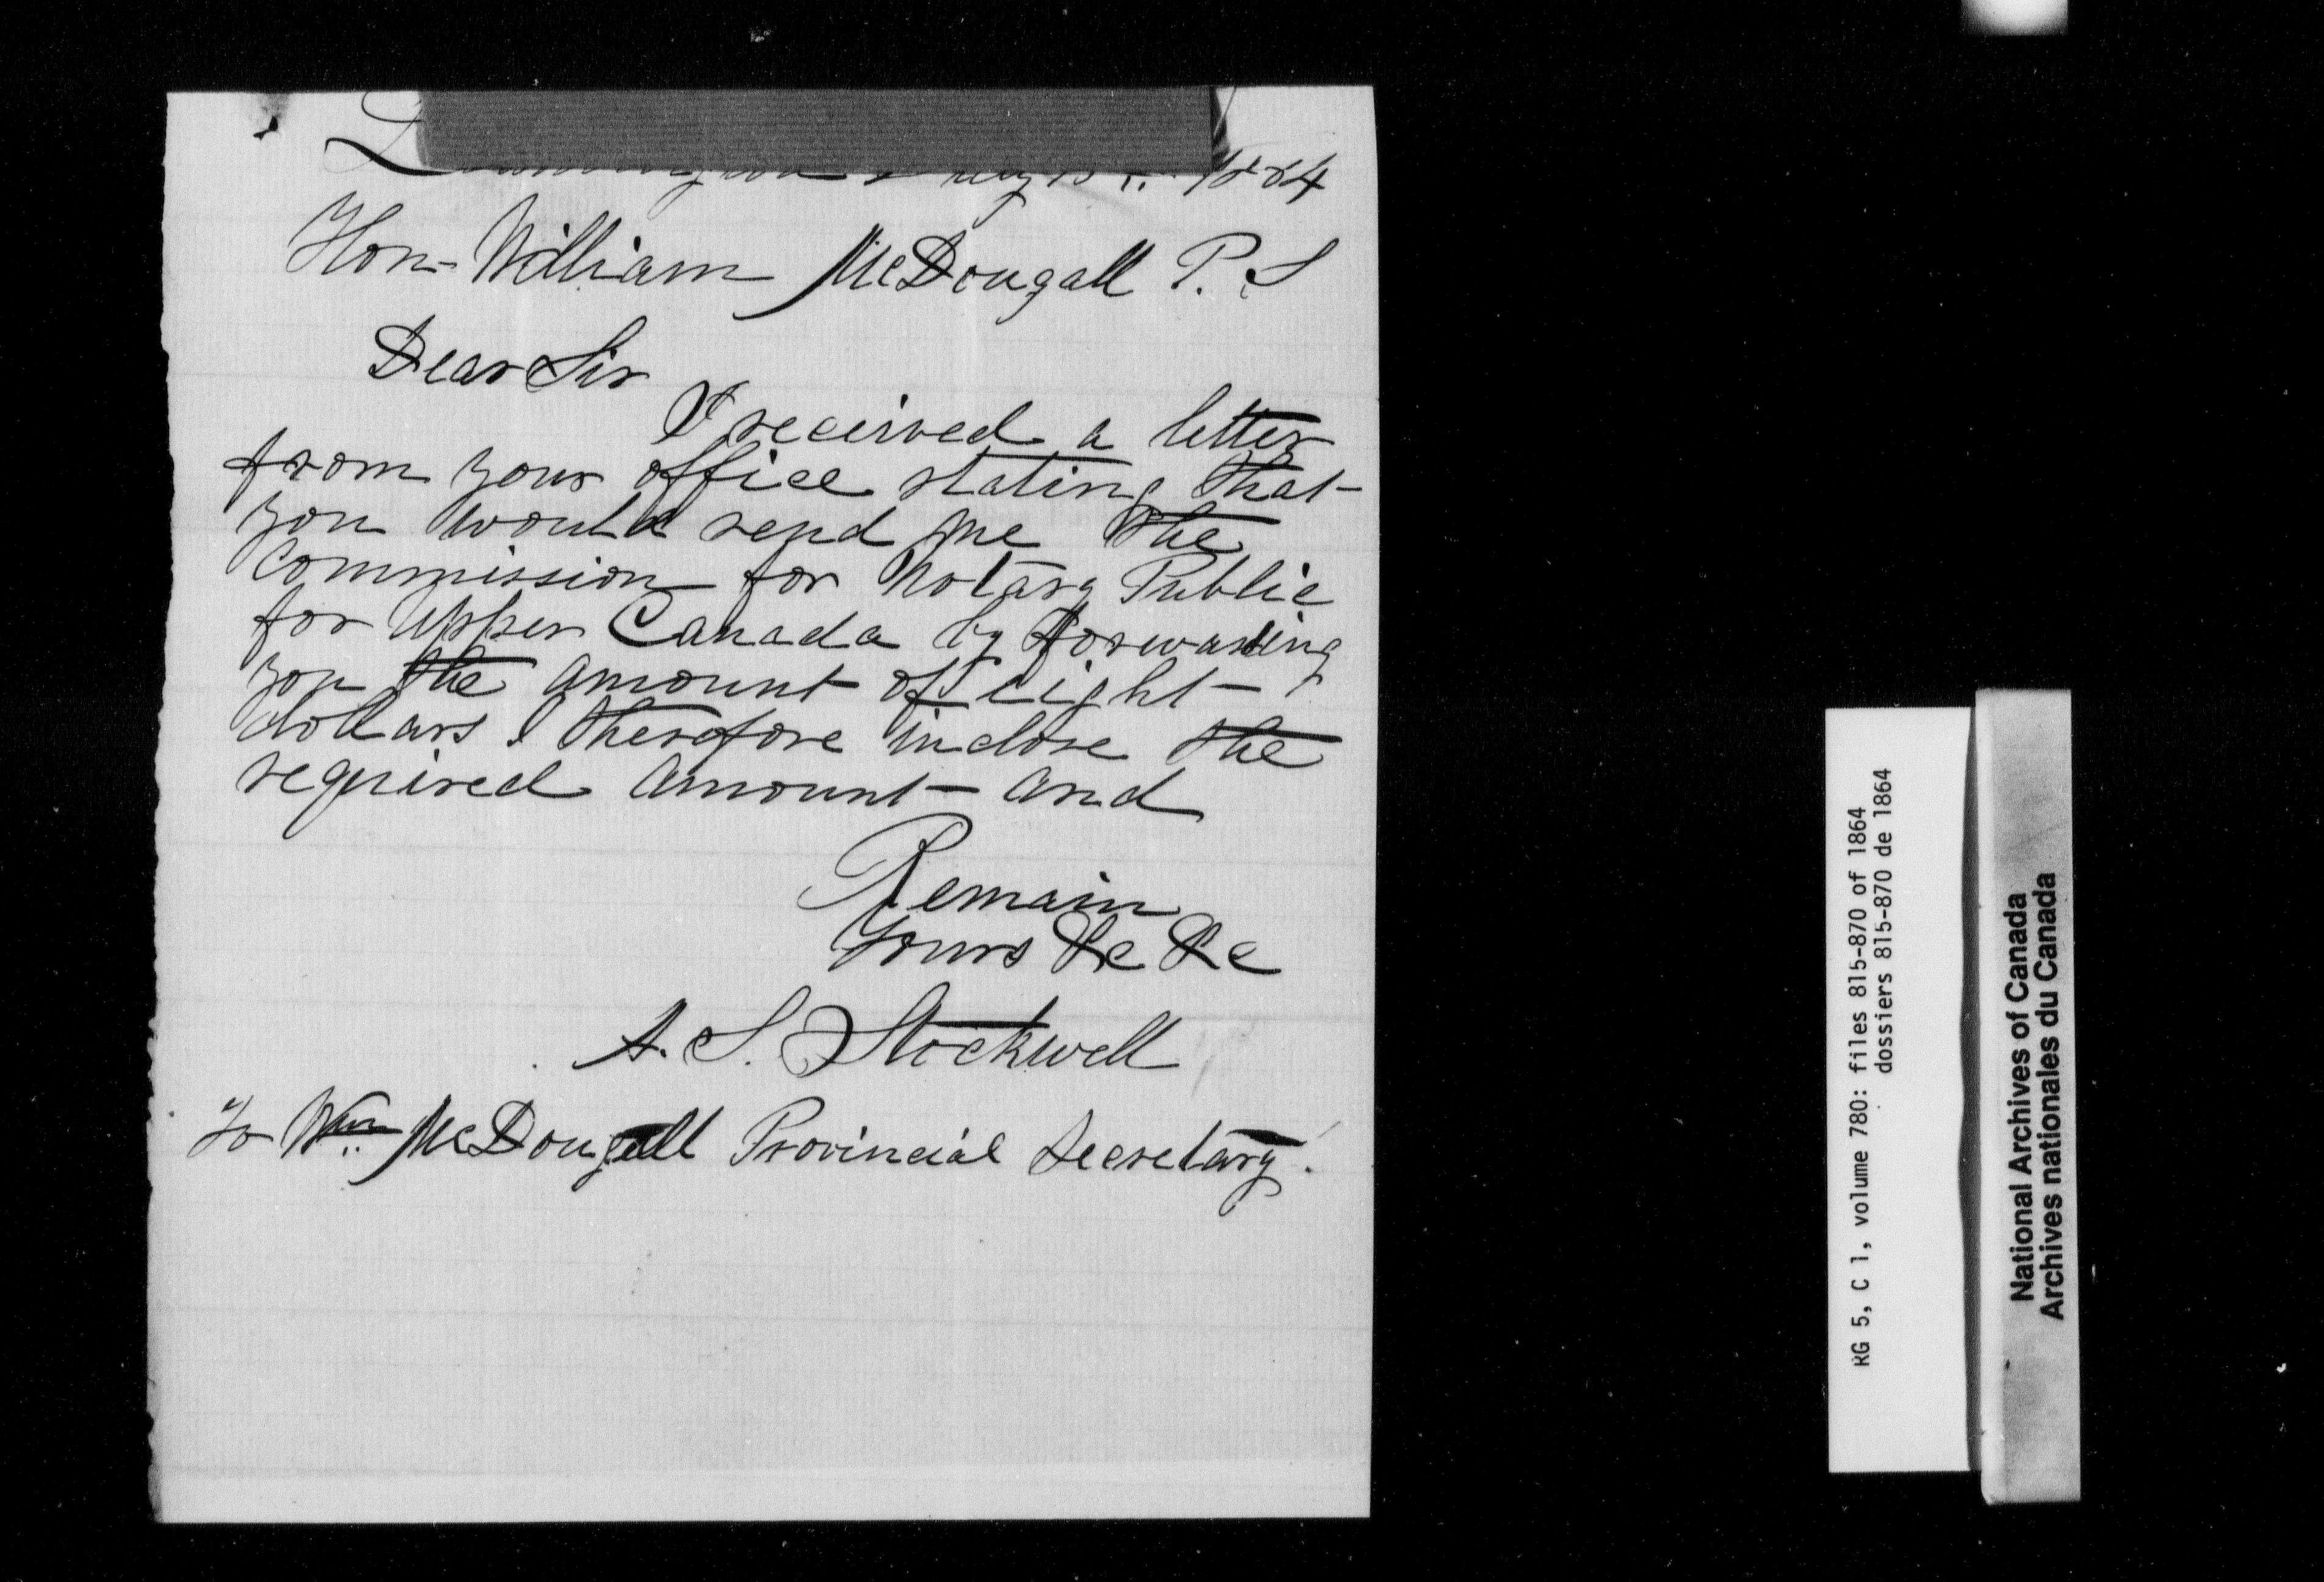 1864
Hon- William McDougall P. S
Dear Sir
I received a letter
from your office stating that-
you would send me the
Commission for Notary Public
for Upper Canada by forwarding
you the amount of eight-
dollars I therefore inclose the
required amount- and
Remain
Yours &c &c
A. S. Stockwell
To Wm McDougall Provincial Secretary.
RG 5, C 1, volume 780: files 815-870 of 1864
dossiers 815-870 de 1864
National Archives of Canada
Archives nationales du Canada